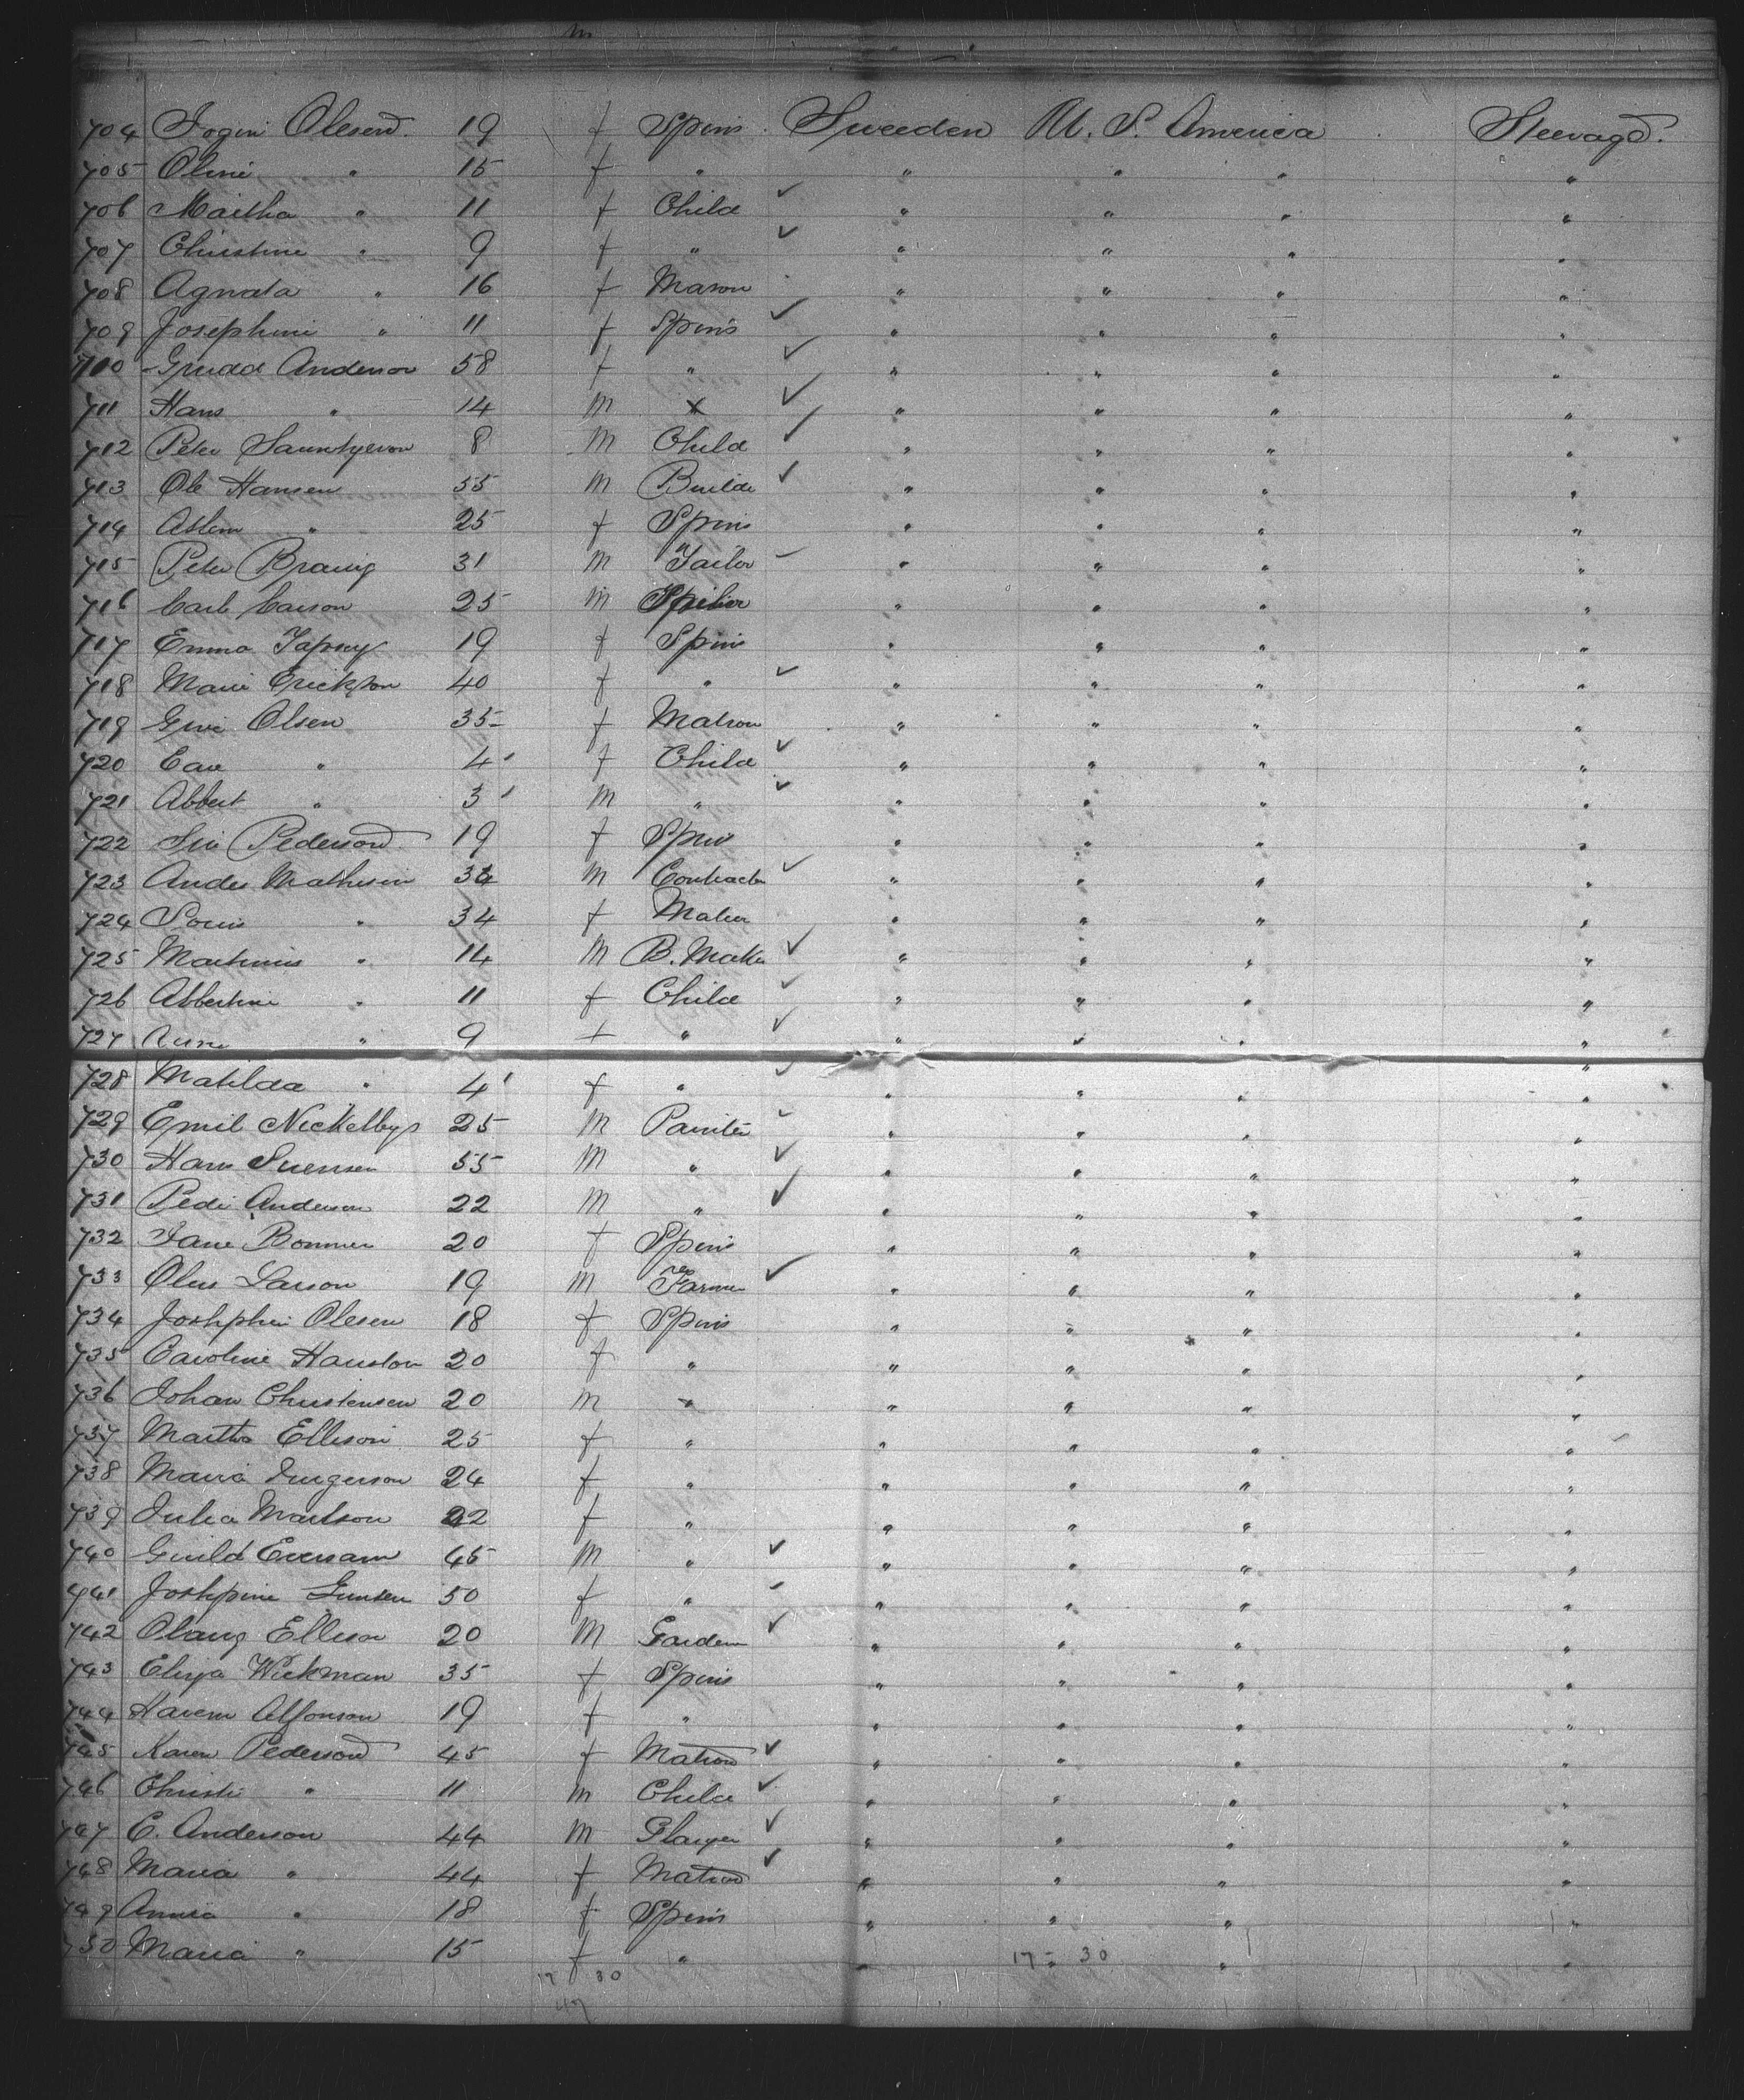 704 Jogini Olesend. 19 f Spins. Sweeden U. S. America Steerage.
705 Oline " 15 f " " " " "
706 Maitha " 11 f Child ✓ " " " "
707 Christine " 9 f " ✓ " " " "
708 Agnata " 16 f Matron " " " "
709 Josephini " 11 f Spins ✓ " " " "
7100 Anderson 58 f " ✓ " " " "
711 Hans " 14 m x ✓ " " " "
712 Peter 8 m Child ✓ " " " "
713 Ole Hansen 55 m Builde ✓ " " " "
714 " 25 f Spins " " " "
715 Peter Braug 31 m Tailor " " " "
716 Carl Carson 25 m " " " "
717 Emma 19 f Spins " " " "
718 Marie Erickson 40 f " ✓ " " " "
719 Olsen 35 f Matron " " " "
720 " 4 f Child ✓ " " " "
721 Albert " 3 m " ✓ " " " "
722 Pederson 19 f Spins " " " "
723 Andes Mathesin 34 m Contractor ✓ " " " "
724 " 34 f " " " "
725 Martinius " 14 m B. Maker ✓ " " " "
726 Albertine " 11 f Child ✓ " " " "
727 " 9 f " ✓ " " " "
728 Matilda " 4 f " ✓ " " " "
729 Emil Nickelbys 25 m Painter ✓ " " " "
730 Hans Suensen 55 m " ✓ " " " "
731 Pede Anderson 22 m " ✓ " " " "
732 Jane Bonner 20 f Spins " " " "
733 Olus Larson 19 m Farmer ✓ " " " "
734 Joshphin Olesen 18 f Spins " " " "
735 Caroline Hanston 20 f " " " " "
736 Johan Christensen 20 m " " " " "
737 Martha Ellison 25 f " " " " "
738 Maria Jurgerson 24 f " " " " "
739 Julia Martson 22 f " " " " "
740 Guild Eversam 45 m " ✓ " " " "
741 Joshpine Gunsen 50 f " ✓ " " " "
742 Olaug Ellison 20 m Garden ✓ " " " "
743 Eliya Wickman 35 f Spins " " " "
744 Alfonson 19 f " " " " "
745 Karen Pederson 45 f Matron ✓ " " " "
746 Christi " 11 m Child ✓ " " " "
747 E. Anderson 44 m ✓ " " " "
748 Maria " 44 f Matron ✓ " " " "
749 Annia " 18 f Spins " " " "
750 Maria " 15 f " " " " "
17 30 17 - 30
47